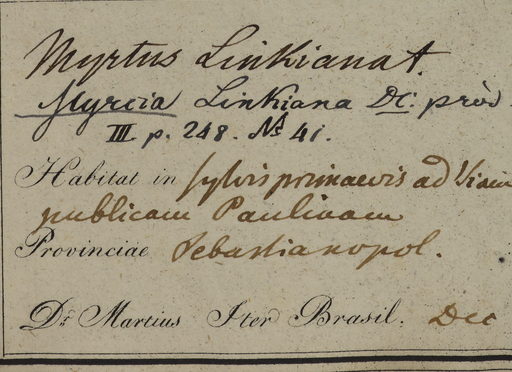 Myrtus Linkiana †.
Myrcia Linkiana DC. prod.
III. p. 248. No 41.
Habitat in sylvis primaevis ad Viam
publicam Paulinam
Provinciae Sebastianopol.
Dr. Martius Iter Brasil. Dec